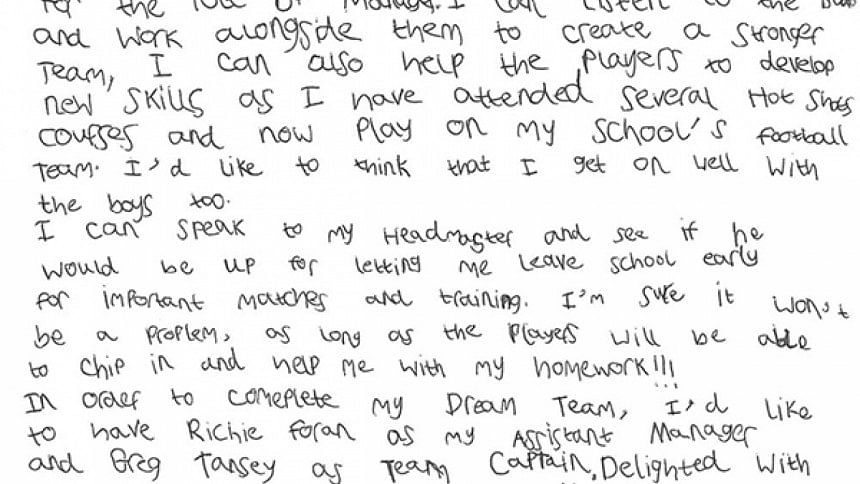 for the role of Manager. I can listen to the
and work alongside them to create a stronger
Team, I can also help the players to develop
new skills as I have attended several Hot Shots
courses and now play on my school's football
Team. I'd like to think that I get on well with
the boys too.
I can speak to my Headmaster and see if he
would be up for letting me leave school early
for important matches and training. I'm sure it won't
be a proplem, as long as the players will be able
to chip in and help me with my homework!!!
In order to comeplete my Dream Team, I'd like
to have Richie Foran as my Assistant Manager
and Greg Tansey as Team Captain, Delighted with